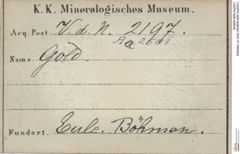 K. K. Mineralogisches Museum.
Acq. Post V. d. N. 2197.
Aa 2601
Name Gold.
Fundort. Eule. Böhmen.